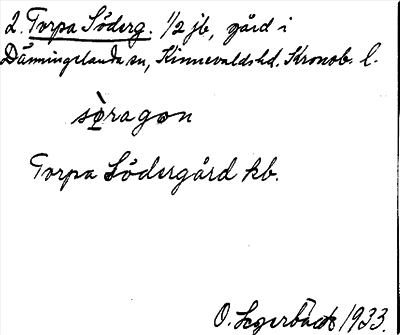 2. Torpa Söderg. 1/2 jb, gård i
Dänningelanda sn, Kinnevalds hd. Kronob. l.
sò̱ragon
Torpa Södergård kb.
O. Segerbäck 1933.